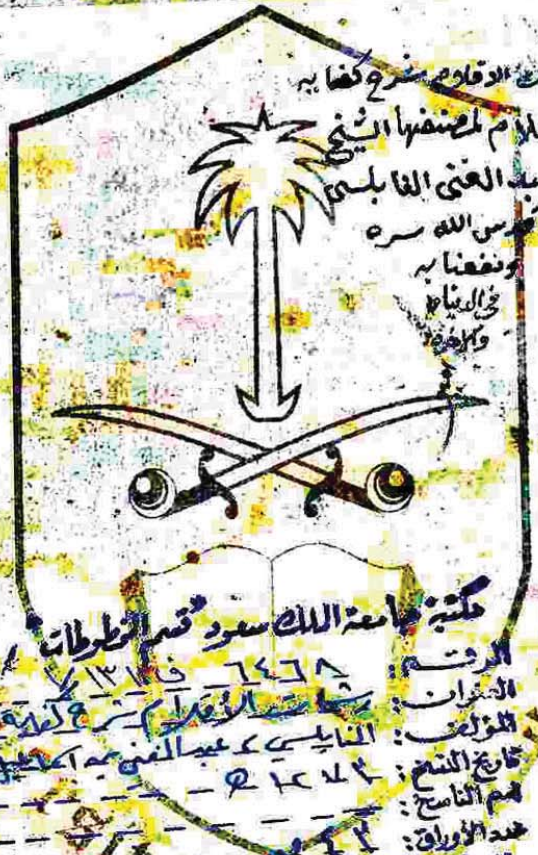 الاقلام شرح كفاية
لمصنفها الشيخ
عبد الغني النابلسي
قدس الله سره
ونفعنا به
في الدنيا
والاخرة
مكتبة جامعة الملك سعود قسم المخطوطات
الرقم: ٦٤٦٨
العنوان: رشحات الأقلام شرح كفاية
المؤلف: النابلسي، عبد الغني بن اسماعيل
تاريخ النسخ: ١٢٧٣ هـ
اسم الناسخ:
عدد الأوراق: